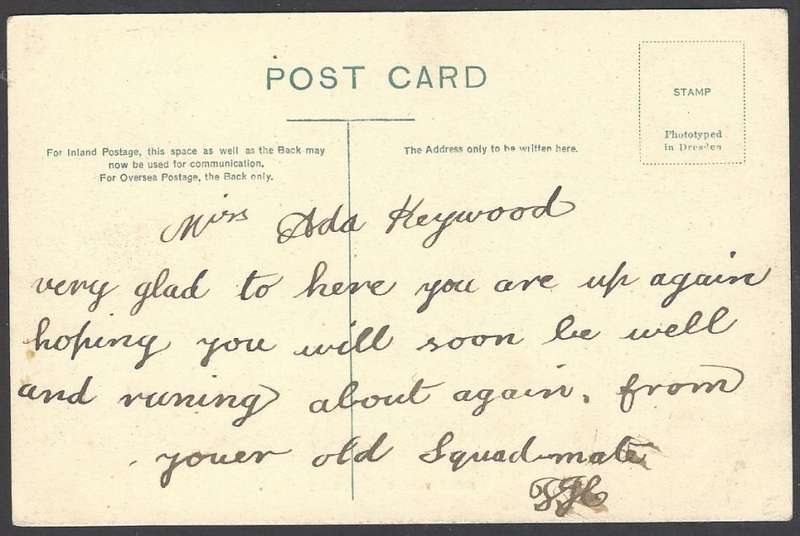 POST CARD
STAMP
Phototyped
in Dresden
For Inland Postage, this space as well as the Back may
now be used for communication.
For Oversea Postage, the Back only.
The Address only to be written here.
Miss Ada Heywood
very glad to here you are up again
hoping you will soon be well
and runing about again. from
youer old Squad-mate